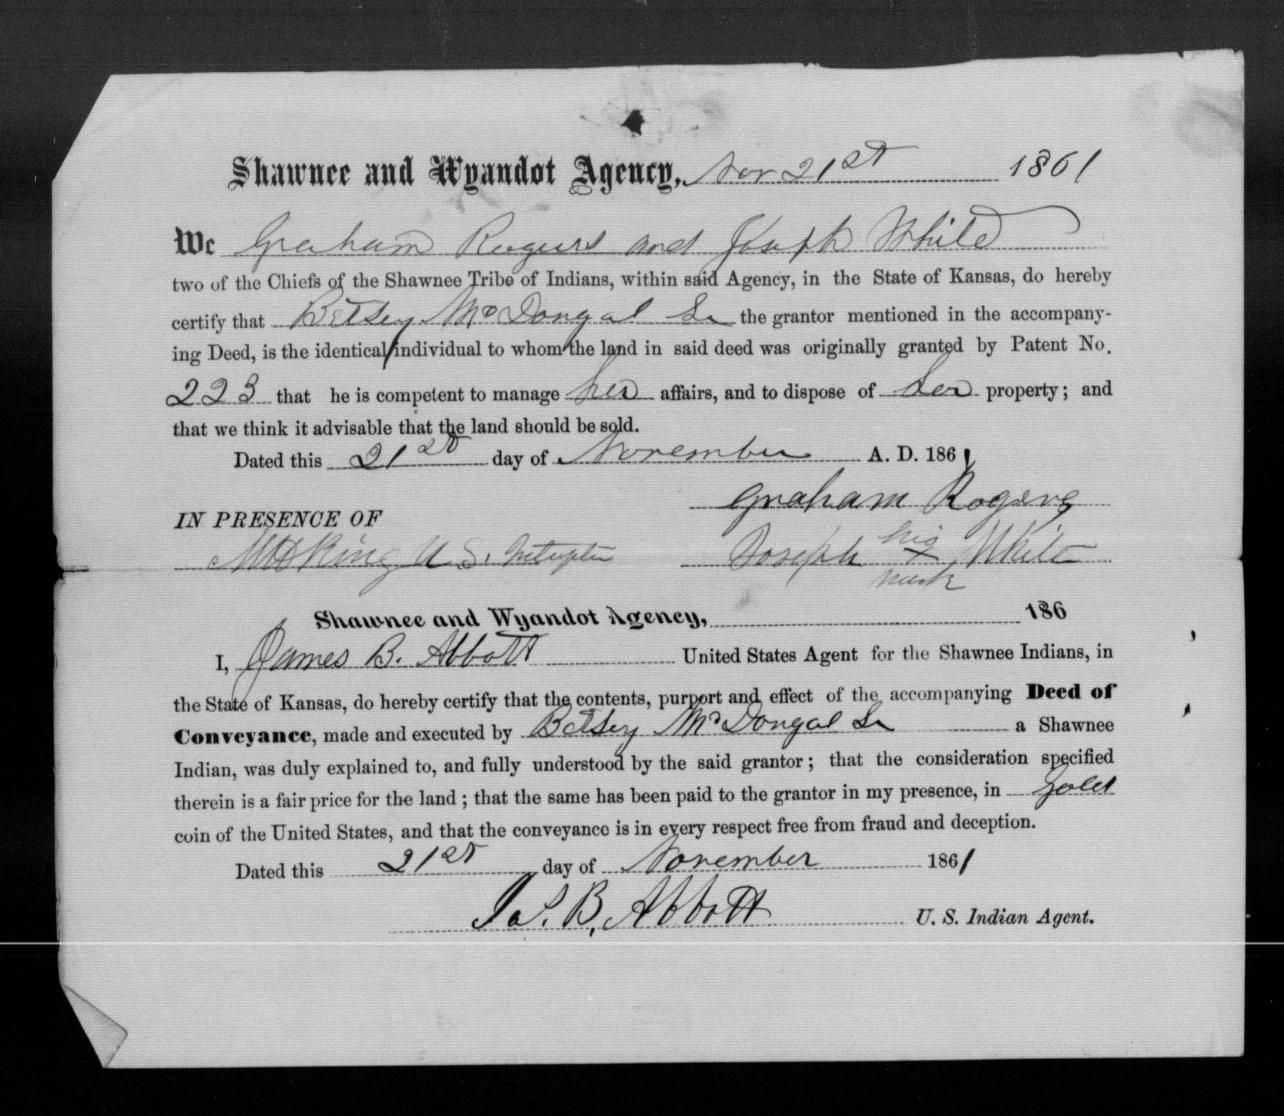 Shawnee and Wyandot Agency, Nov 21st 1861
We Graham Rogers and Joseph White
two of the Chiefs of the Shawnee Tribe of Indians, within said Agency, in the State of Kansas, do hereby
certify that Betsey McDougal Sr the grantor mentioned in the accompany-
ing Deed, is the identical individual to whom the land in said deed was originally granted by Patent No.
223 that he is competent to manage her affairs, and to dispose of her property; and
that we think it advisable that the land should be sold.
Dated this 21st day of November A. D. 1861
Graham Rogers
IN PRESENCE OF
King U. S. Interpter Joseph his x mark White
Shawnee and Wyandot Agency, 186
I, James B. Abbott United States Agent for the Shawnee Indians, in
the State of Kansas, do hereby certify that the contents, purport and effect of the accompanying Deed of
Conveyance, made and executed by Betsey McDougal Sr a Shawnee
Indian, was duly explained to, and fully understood by the said grantor; that the consideration specified
therein is a fair price for the land; that the same has been paid to the grantor in my presence, in Gold
coin of the United States, and that the conveyance is in every respect free from fraud and deception.
Dated this 21st day of November 1861
Jas. B. Abbott U. S. Indian Agent.